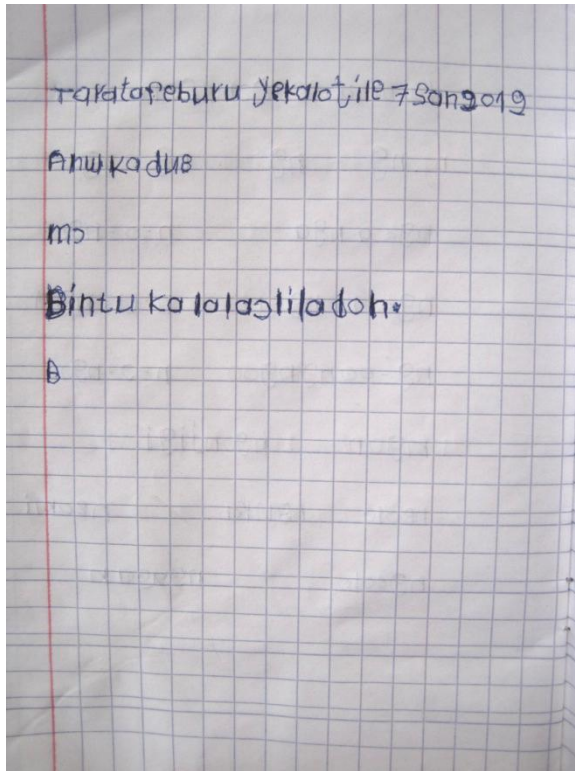 Taratafeburu yekalotile 7 San2019
Anw ka dus
mɔ
Bintu ka lalaɔliladon.
B